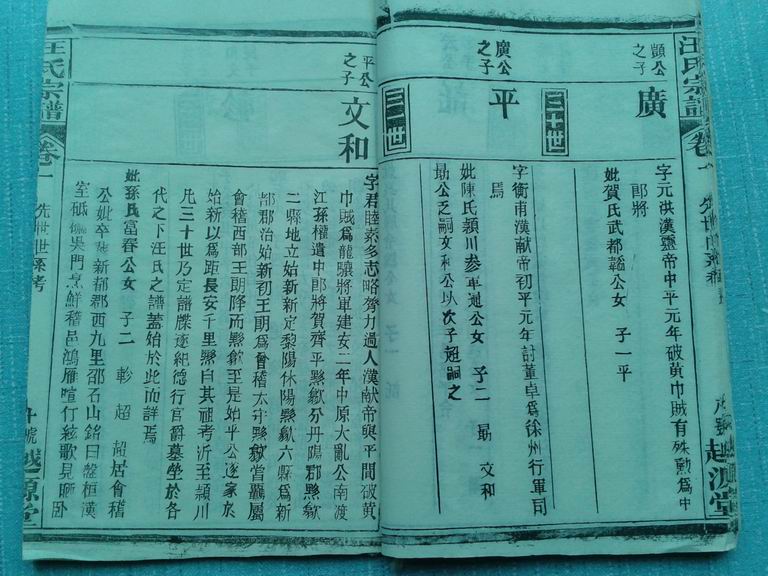 汪氏宗譜
卷一
顗公
之子
廣
字元洪漢靈帝中平元年破黃巾賊有殊勳為中
郎將
妣賀氏武都韜公女 子一平
三十世
廣公
之子
平
字衡南漢献帝初平元年討董卓爲徐州行軍司
馬
妣陳氏潁川参軍逈公女 子二 勗 文和
勗公乏嗣文和公以次子超嗣之
三一世
平公
之子
文和
字君睦素多志略膂力過人漢献帝興平間破黃
巾賊爲龍驤將軍建安二年中原大亂公南渡
江孫權遣中郎將賀齊平黟歙分丹陽郡黟歙
二縣地立始新新定黎陽休陽黟歙六縣爲新
都郡治始新初王朗爲會稽太守黟歙皆屬
會稽西部王朗降而黟歙至是始平公遂家於
始新以為距長安千里黟自其祖考沂至潁川
凡三十世乃定譜牒逐紀德行官爵墓塋於各
代之下汪氏之譜蓋始於此而詳焉
妣孫氏富春公女 子二 軫 超 超居會稽
公妣卒葬新都郡西九里邵石山銘曰
吳門烹鮮稽邑鴻雁
絃歌見
汪氏宗譜
卷一
先世世系考
越源堂